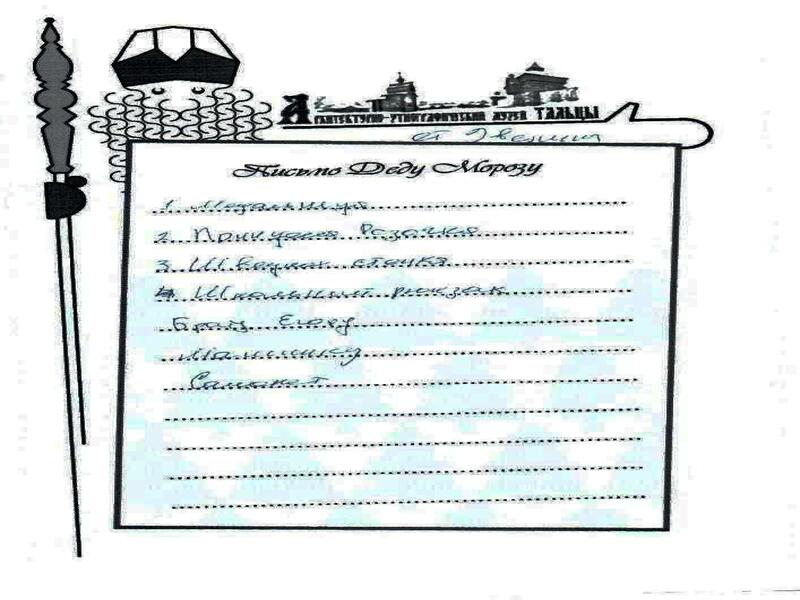 Архитектурно-этнографический музей ТАЛЬЦЫ
от Эвелина
Письмо Деду Морозу
1
2. Принцесса Розочка
3. Швейная станка
4. Шкальный рюкзак
Брату Егору
Машинку
Самакат